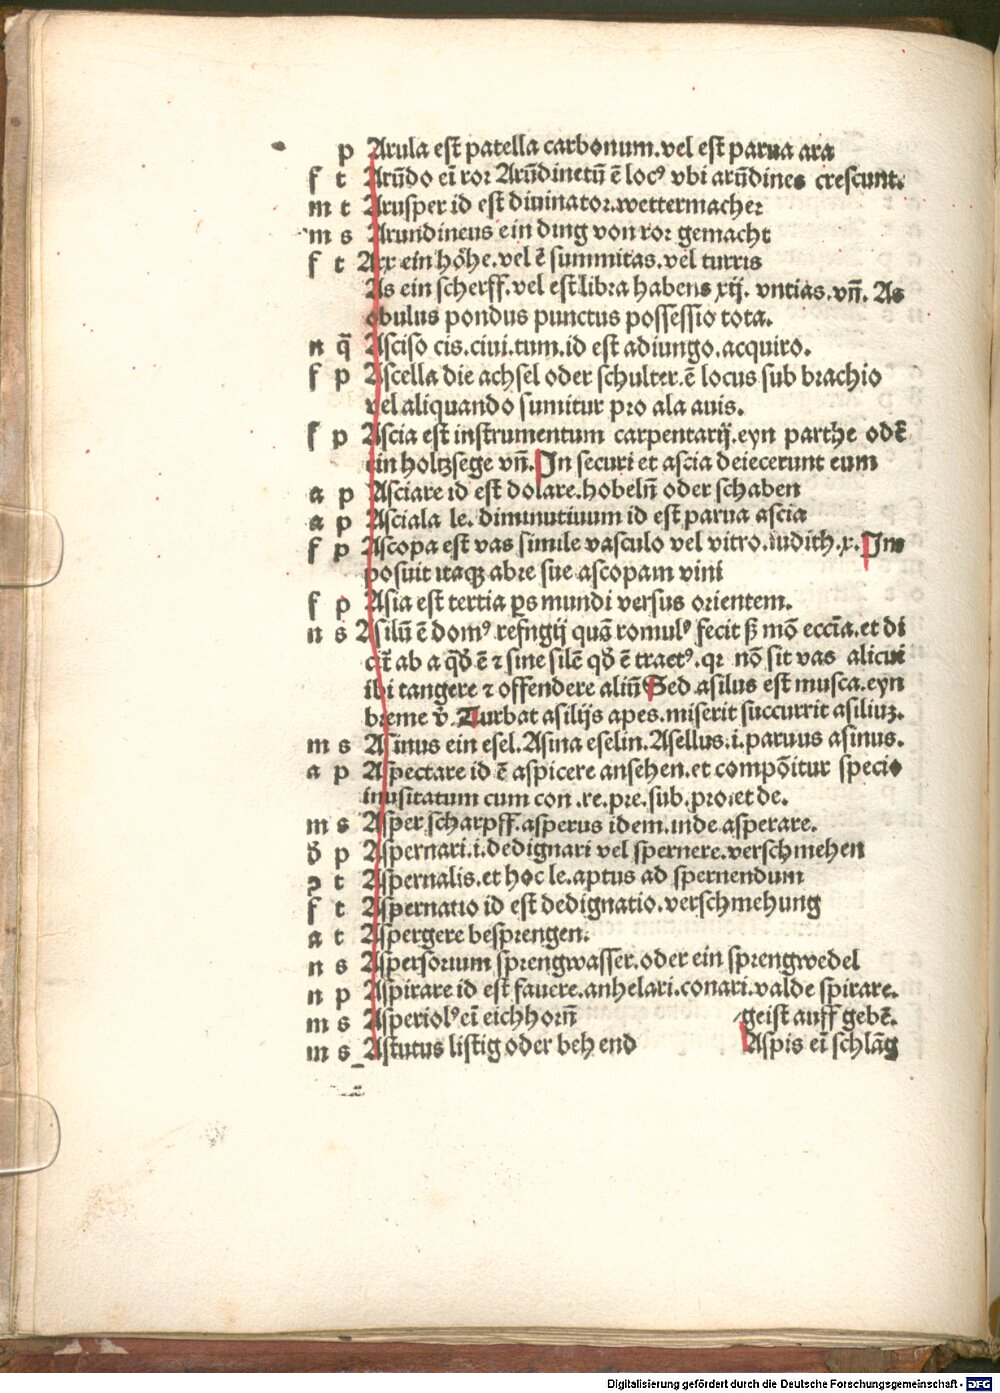 p Arula est patella carbonum.vel est parua ara
f t Arũdo eĩ ror Arũdinetũ ẽ locꝰ vbi arũdines crescunt.
m t Aruſper id eſt diuinator.wettermacher
m s Arundineus ein ding von ror gemacht
f t Arx ein höhe.vel ẽ ſummitas.vel turris
As ein ſcherff.vel eſt libra habens xij. vntias.vñ. As
obulus pondus punctus poſſeſſio tota.
n q̃ Aſciſo cis.ciui.tum.id eſt adiungo.acquiro.
f p Aſcella die achſel oder ſchulter.ẽ locus ſub brachio
vel aliquando ſumitur pro ala auis.
f p Aſcia eſt inſtrumentum carpentarij.eyn parthe odẽ
ein holtzſege vñ.In ſecuri et aſcia deiecerunt eum
a p Aſciare id eſt dolare.hobelñ oder ſchaben
a p Aſciala le. diminutiuum id eſt parua aſcia
f p Aſcopa eſt vas ſimile vaſculo vel vitro.iudith.x.Im
poſuit itaqꝫ abre ſue aſcopam vini
f p Aſia eſt tertia ꝑs mundi verſus orientem.
n s Aſilũ ẽ domꝰ refngij quã romulꝰ fecit ꝓ mõ eccĩa.et di
cit̃ ab a qđ ẽ ⁊ ſine ſilẽ qđ ẽ tractꝰ.qꝛ nõ ſit vas alicui
ibi tangere ⁊ offendere aliñ Sed aſilus eſt muſca.eyn
breme v̉.Turbat aſilijs apes.miſerit ſuccurrit aſiliuꝫ.
m s Aſinus ein eſel.Aſina eſelin.Aſellus.i.paruus aſinus.
a p Aſpectare id ẽ aſpicere anſehen.et compõitur ſpecio
inuſitatum cum con.re.pre.ſub.pro.et de.
m s Aſper ſcharpff.aſperus idem.inde aſperare.
đ p Aſpernari.i.dedignari vel ſpernere.verſchmehen
ꝯ t Aſpernalis.et hoc le.aptus ad ſpernendum
f t Aſpernatio id eſt dedignatio.verſchmehung
a t Aſpergere beſprengen.
n s Aſperſorium ſprengwaſſer.oder ein ſprengwedel
n p Aſpirare id eſt fauere.anhelari.conari.valde ſpirare.
m s Aſperiolꝰ eĩ eichhorñ geiſt auff gebẽ.
m s Aſtutus liſtig oder behend Aſpis eĩ ſchlãg
Digitalisierung gefördert durch die Deutsche Forschungsgemeinschaft - DFG